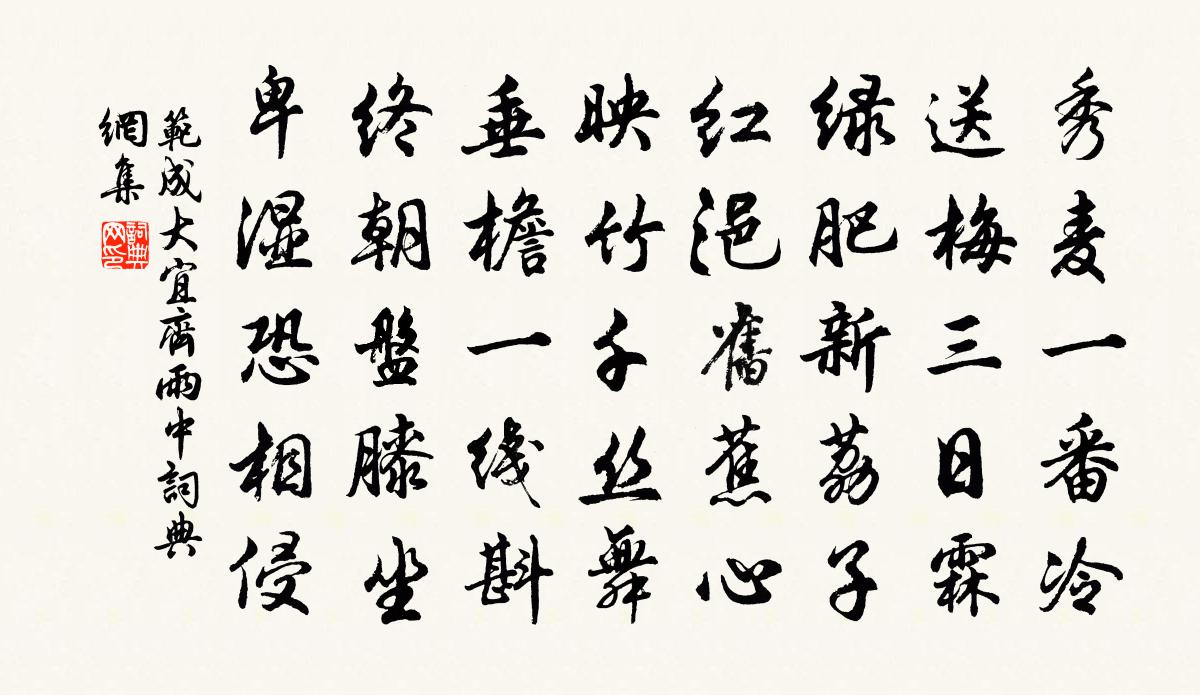 秀麦一番冷
送梅三日霖
绿肥新荔子
红浥舊蕉心
映竹千丝舞
垂檐一线斟
终朝盤膝坐
卑湿恐相侵
範成大宜齋雨中詞典
網集
詞典网印